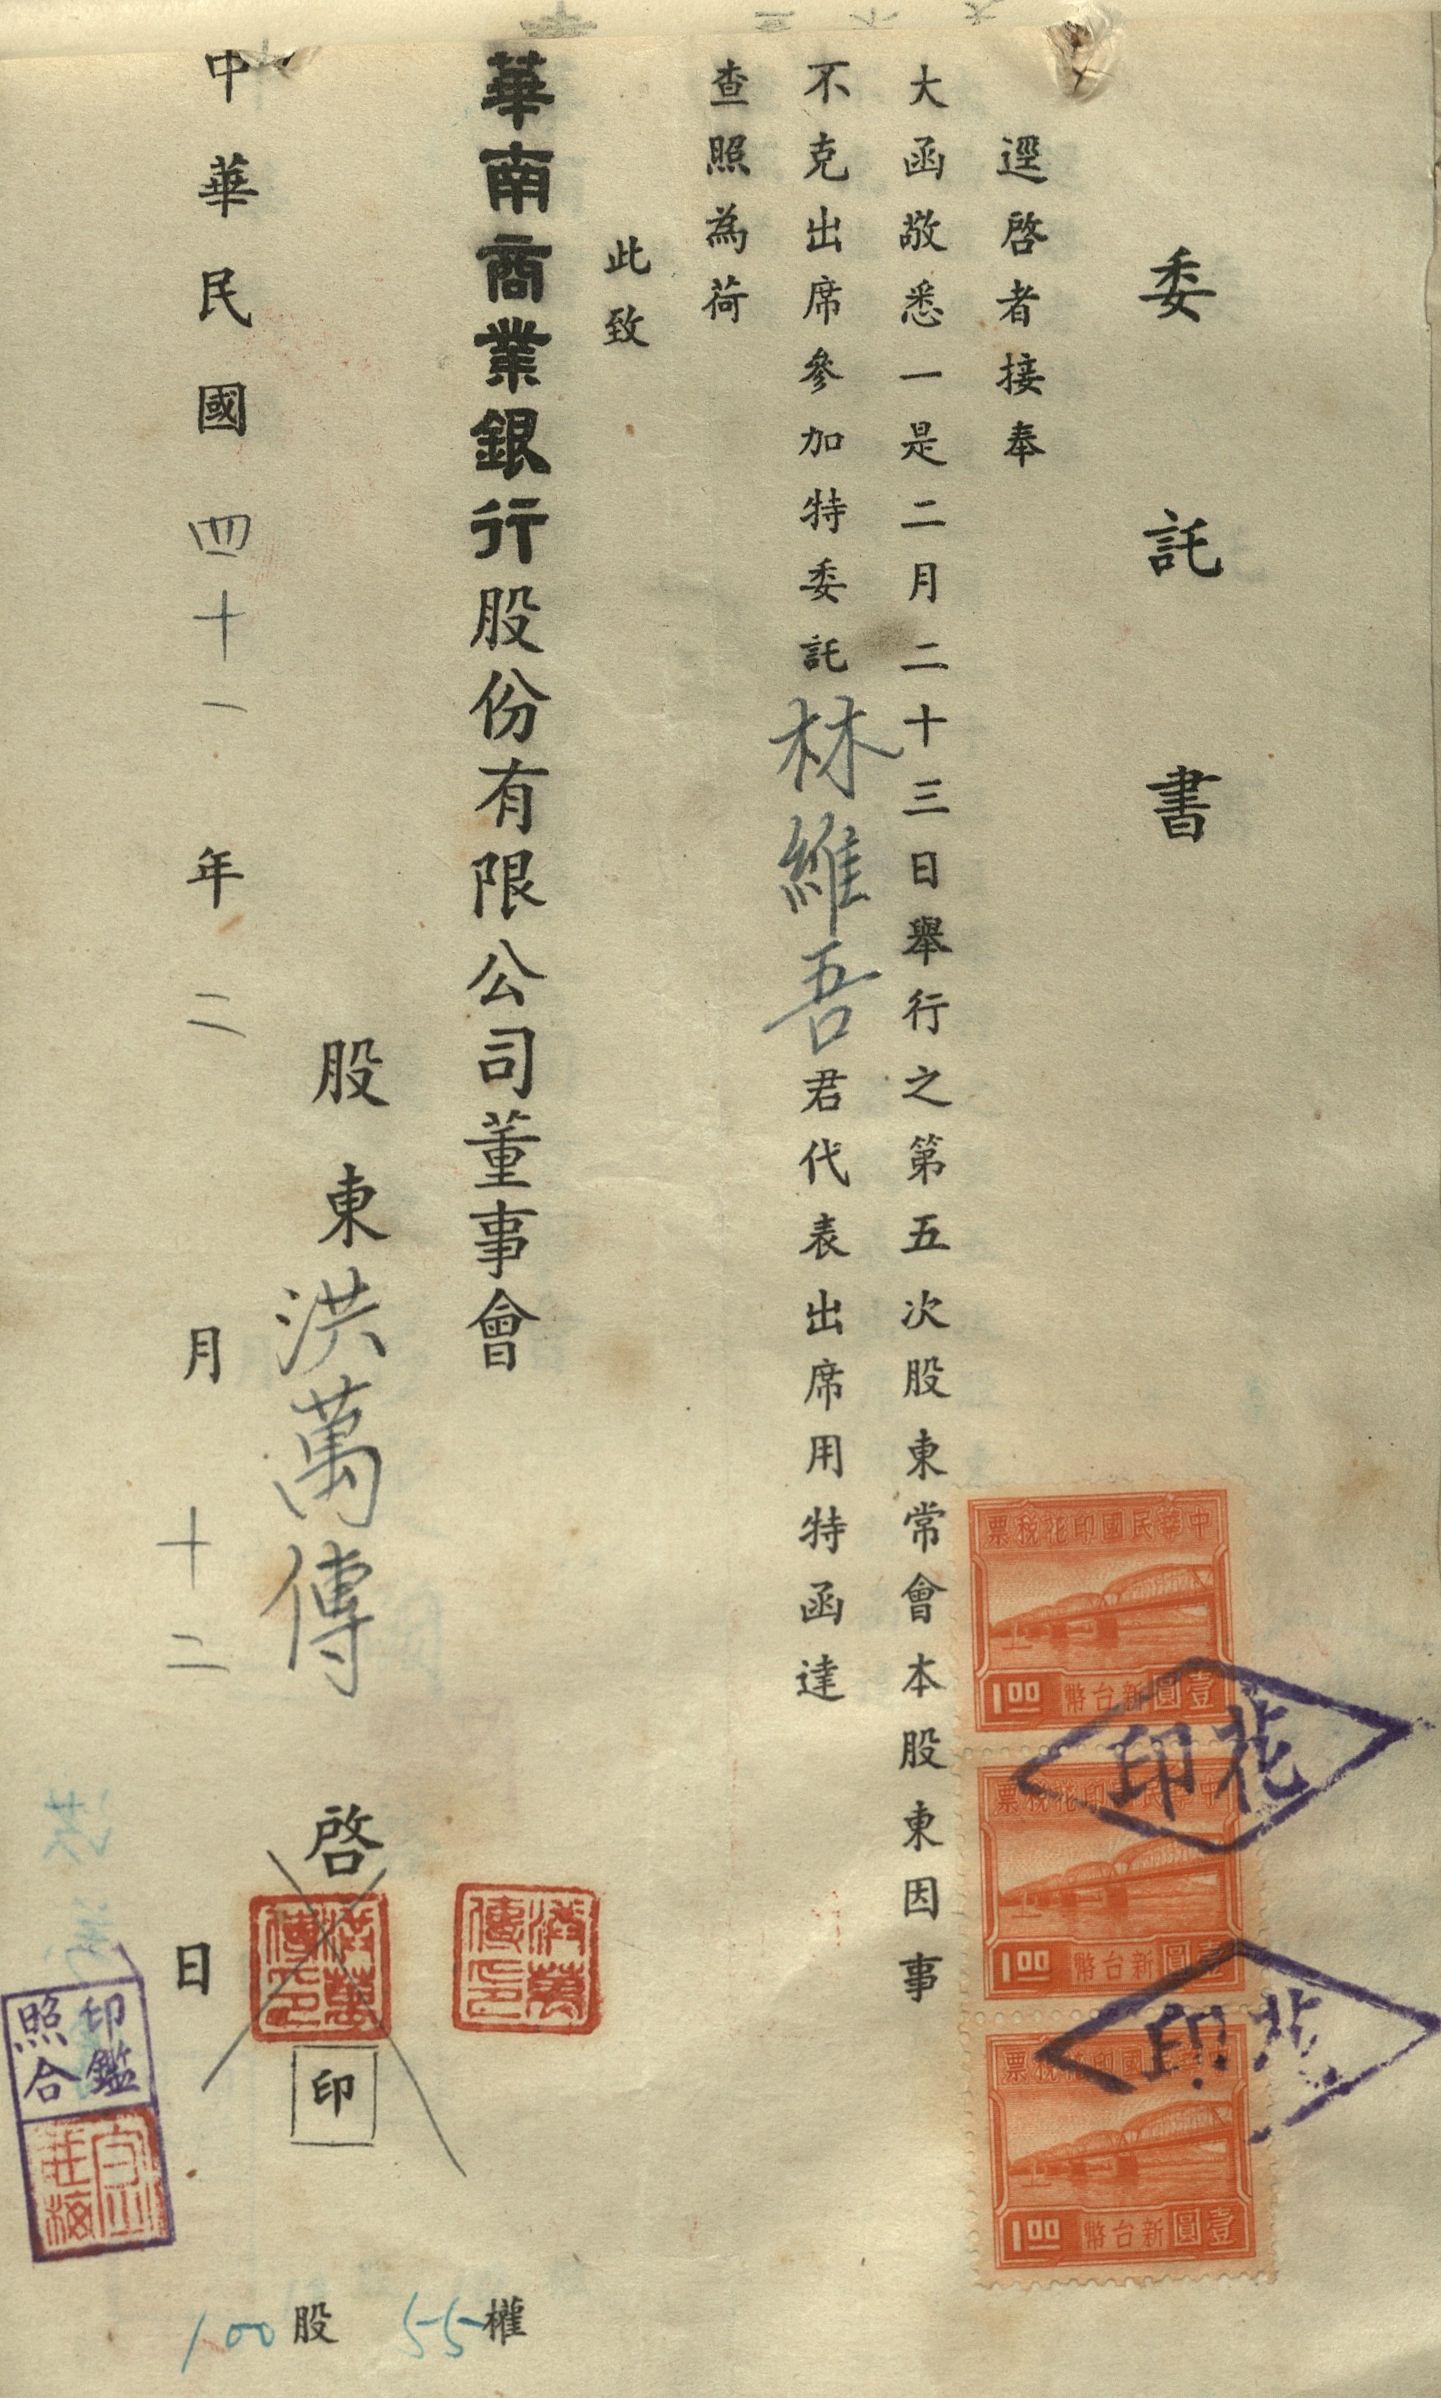 委託書
逕啓者接奉
大函敬悉一是二月二十三日舉行之第五次股東常會本股東因事
不克出席參加特委託林維吾君代表出席用特函達
查照為荷
此致
華南商業銀行股份有限公司董事會
股東洪萬傳啓
印
中華民國四十一年二月十二日
100股 55權
中華民國印花稅票
壹圓新台幣
1.00
中華民國印花稅票
壹圓新台幣
1.00
中華民國印花稅票
壹圓新台幣
1.00
花印
花印
洪萬傳印
洪萬傳印
印鑑
照合